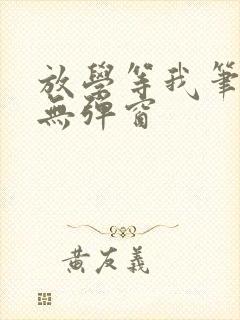 放學等我筆
無彈窗
黃友義